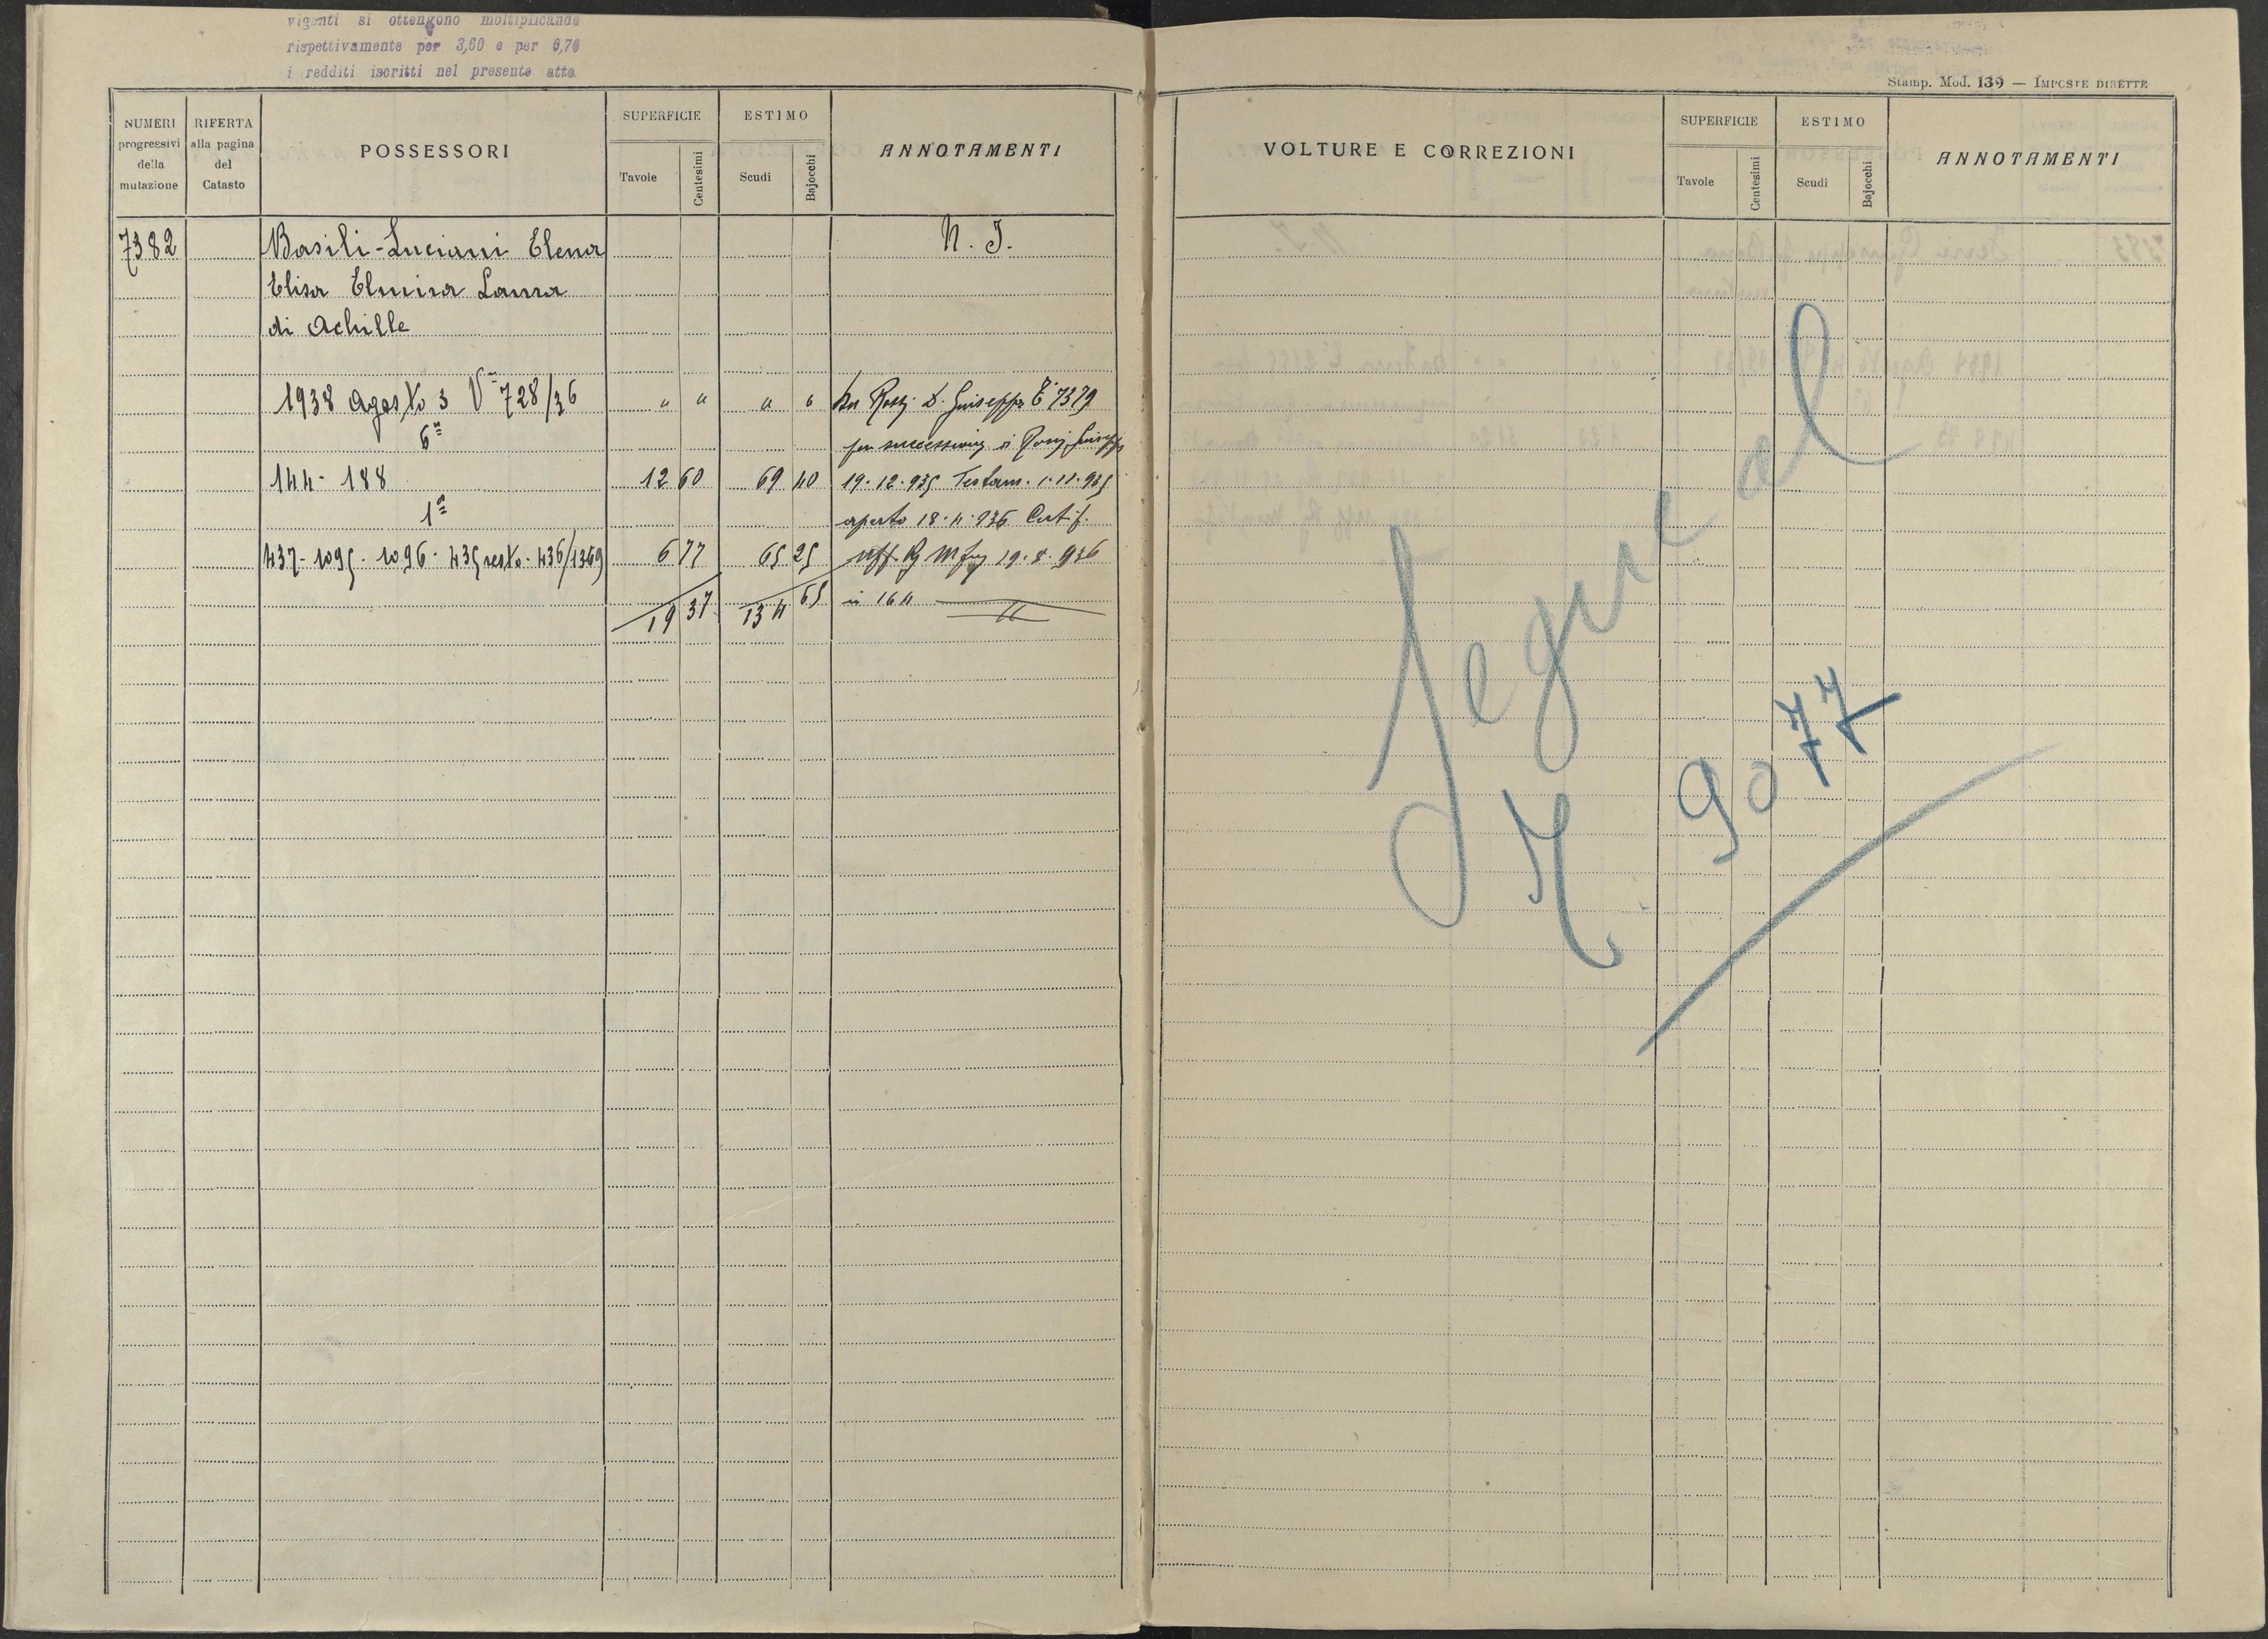 viganti si ottengono moltiplicando
rispettivamente per 3,60 e per 6,70
i redditi iscritti nel presente atto
NUMERI progressivi della mutazione
RIFERTA alla pagina del Catasto
POSSESSORI
SUPERFICIE
Tavole
Centesimi
ESTIMO
Scudi
Bajocchi
ANNOTAMENTI
7382 Basili-Luciani Elena N. I.
Elisa Elmira Laura
di Achille
1938 Agosto 3 Vª 728/36 " " " " Da D. Giuseppe E 7379
6ª per successione di Giuseppe
144 - 188 12 60 69 40 19.12.935 Testam. 1.11.935
1ª aperto 18.4.936 Certif.
437 - 1095 - 1096 - 435 resto - 436/1369 6 77 65 25 Uff. 19.8.936
19 37 134 65 in 164
Stamp. Mod. 139 — IMPOSTE DIRETTE
VOLTURE E CORREZIONI
SUPERFICIE
Tavole
Centesimi
ESTIMO
Scudi
Bajocchi
ANNOTAMENTI
Segue al
N. 9077